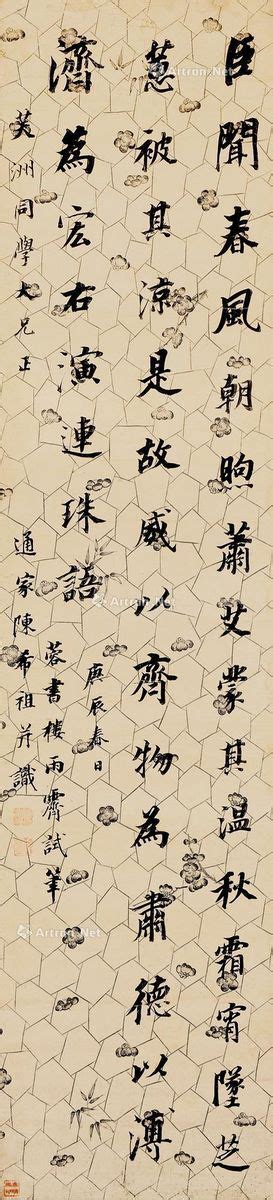 臣聞春風朝煦蕭艾蒙其温秋霜宵墜芝
蕙被其涼是故威以齊物為肅德以溥
濟為宏右演連珠語
庚辰春日
蓉書樓雨霽試筆
芙洲同學大兄正
通家陳希祖并識
Artron.Net
Artron.Net
Artron.Net
Artron.Net
Artron.Net